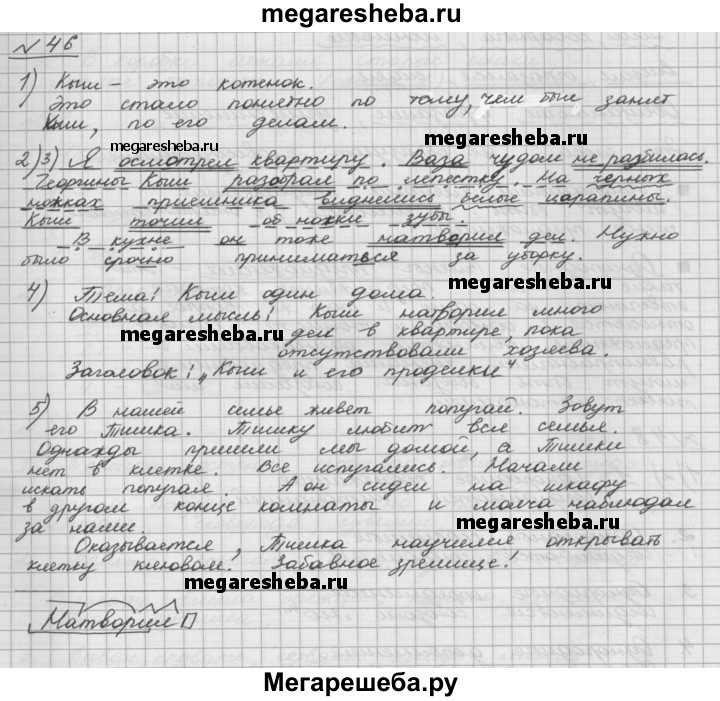 megaresheba.ru
№ 46
1) Кыш – это котенок.
Это стало понятно по тому, чем был занят
Кыш, по его делам.
megaresheba.ru
megaresheba.ru
2)3) Я осмотрел квартиру. Ваза чудом не разбилась.
Георгины Кыш разобрал по лепестку. На черных
ножках приемника виднелись белые царапины.
Кыш точил об ножки зубы.
В кухне он тоже натворил дел. Нужно
было срочно приниматься за уборку.
4) Тема: Кыш один дома.
Основная мысль: Кыш натворил много
megaresheba.ru дел в квартире, пока
отсутствовали хозяева.
Заголовок: „Кыш и его проделки“
5) В нашей семье живет попугай. Зовут
его Тишка. Тишку любит вся семья.
Однажды пришли мы домой, а Тишки
нет в клетке. Все испугались. Начали
искать попугая. А он сидел на шкафу
в другом конце комнаты и молча наблюдал
за нами.
megaresheba.ru
Оказывается, Тишка научился открывать
клетку клювом. Забавное зрелище!
megaresheba.ru
Натворил
Мегарешеба.ру